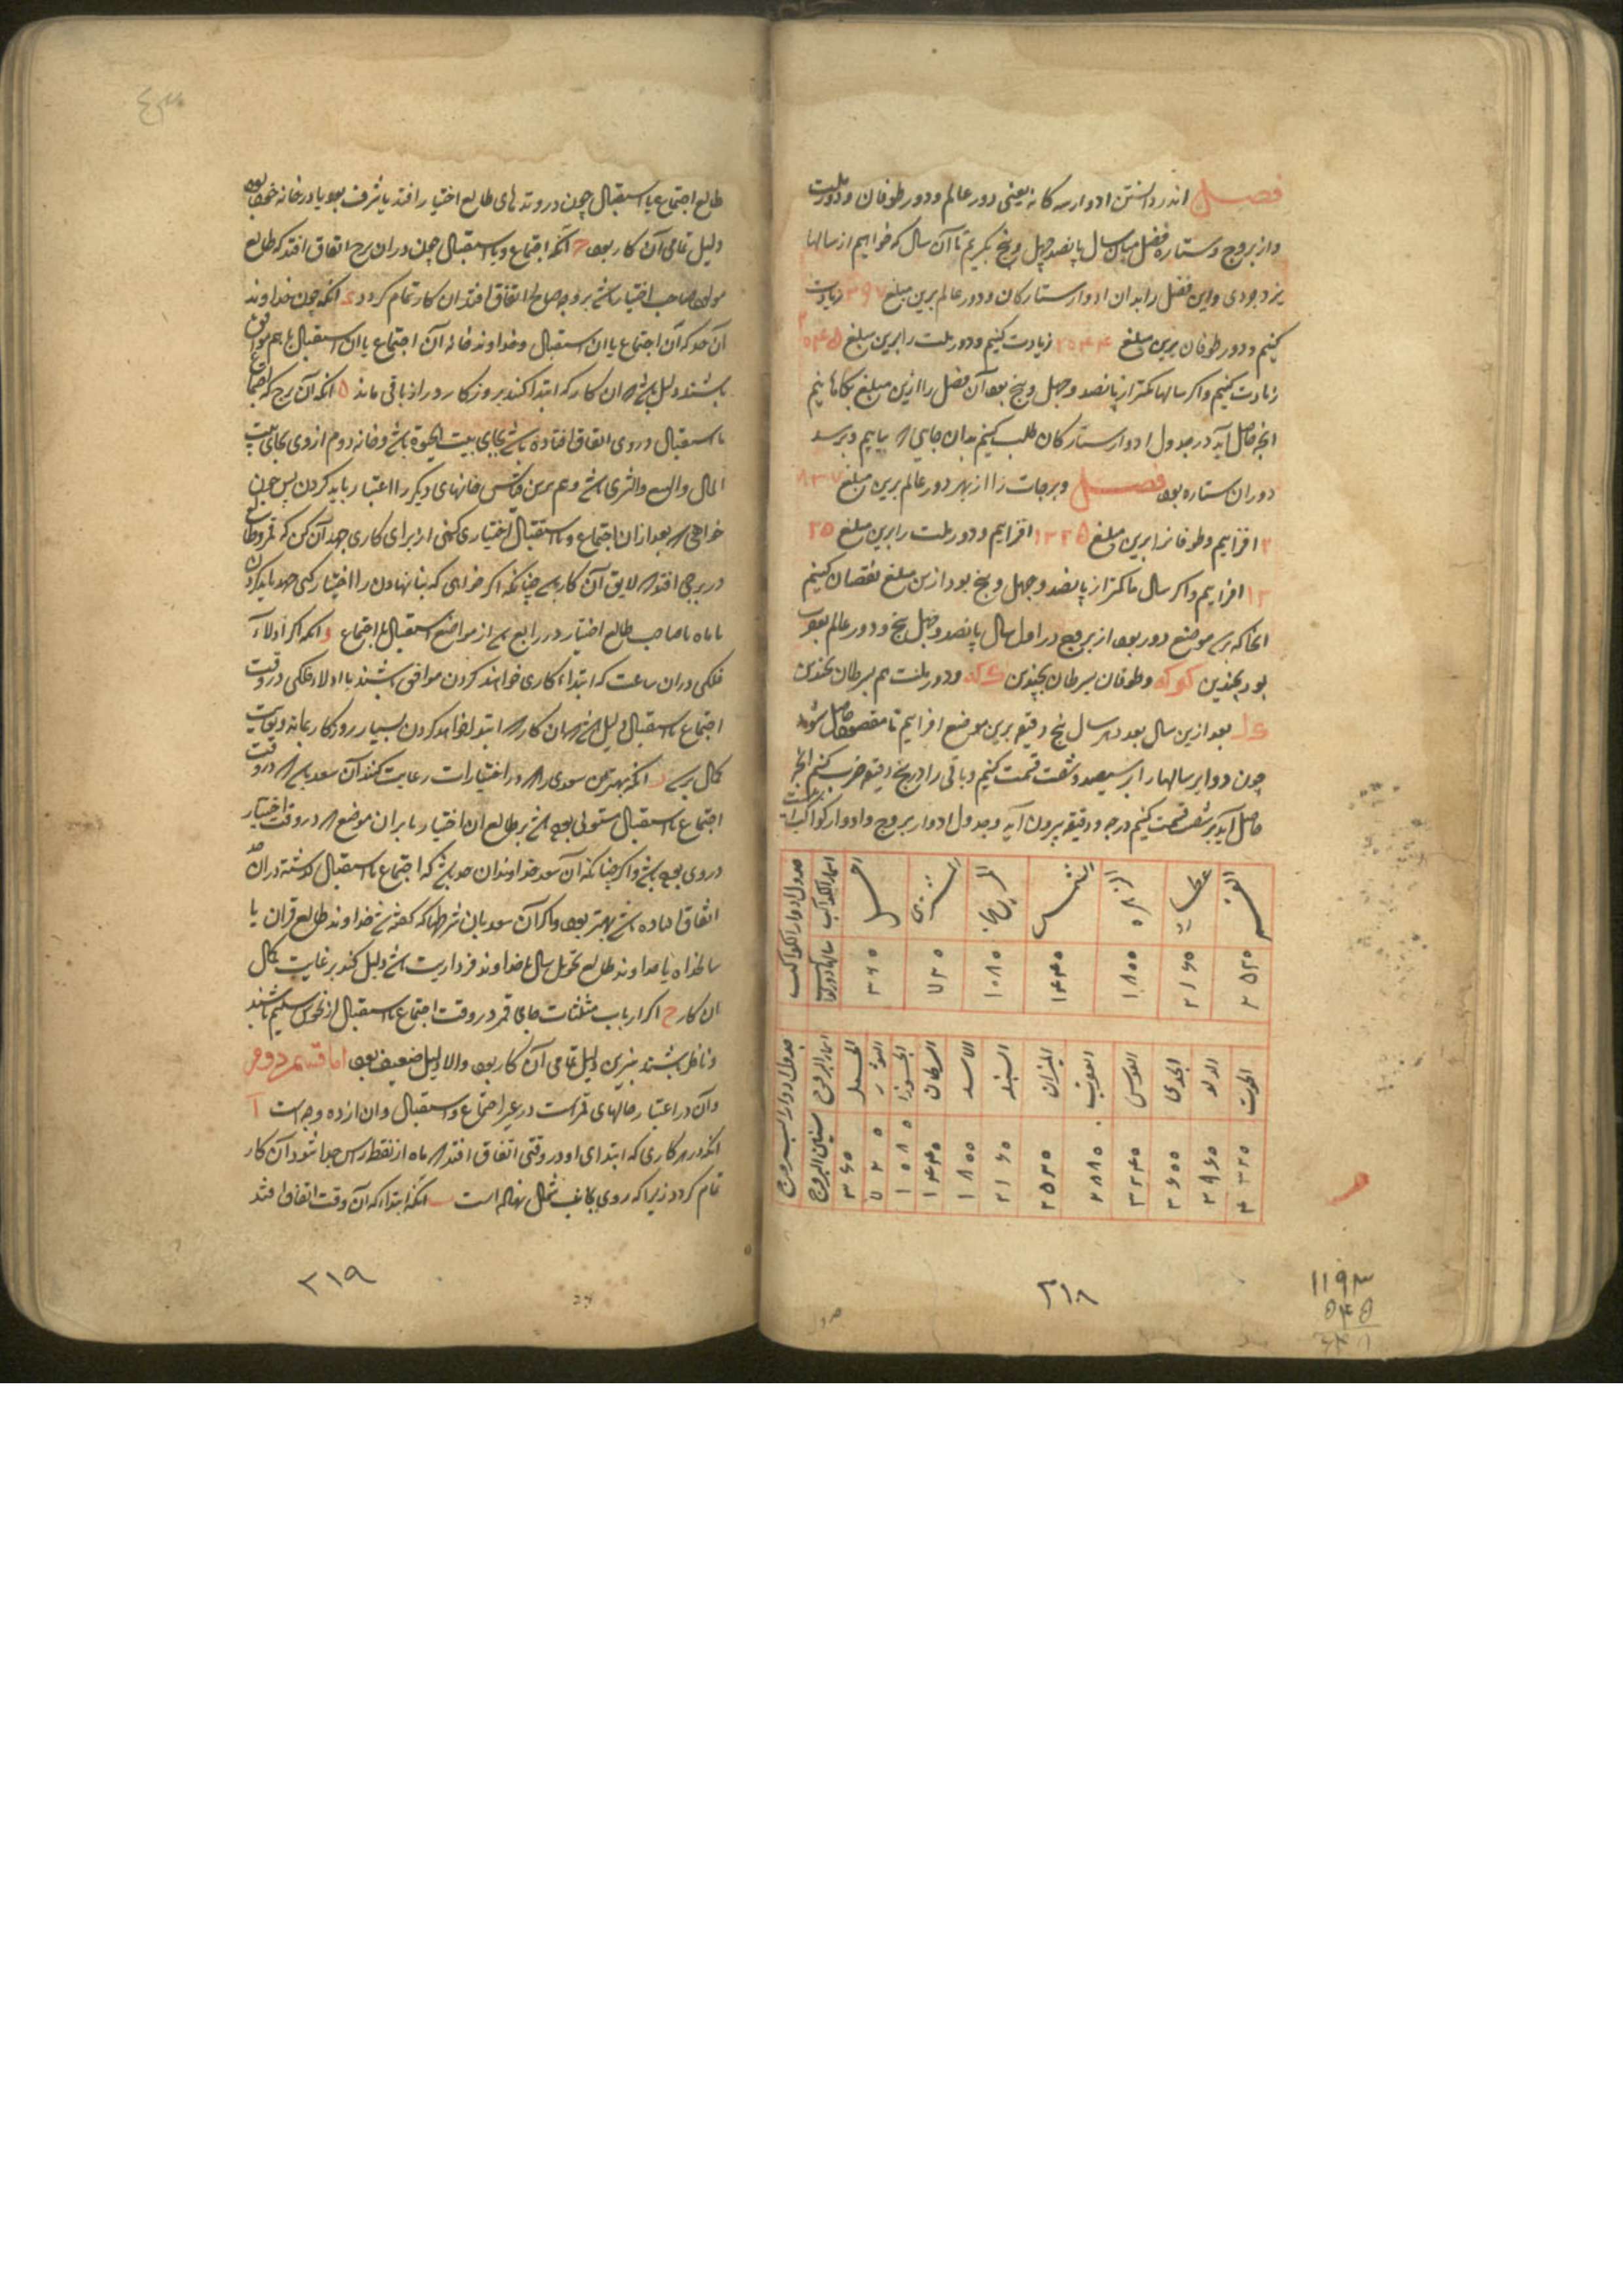 فصل اندر دانستن ادوار سه کانه یعنی دور عالم و دور طوفان و دور ملت
و از بروج و ستاره فضل میان سال پانصد چهل و پنج بکریم تا آن سال که خواهیم از سالها
یزدجردی و این فضل را بدان ادوار ستارکان و دور عالم برین مبلغ زیادت
کنیم و دور طوفان برین مبلغ ۲۵۴۴ زیادت کنیم و دور ملت را برین مبلغ
زیادت کنیم و اکر سالها کمتر از پانصد و چهل و پنج بود آن فضل را ازین مبلغ بکاهانیم
انچه حاصل آید در جدول ادوار ستارکان طلب کنیم بدان جای که یابیم و برسد
دوران ستاره بود فصل و برجات را از بهر دور عالم برین مبلغ
افزاییم و طوفانرا برین مبلغ افزاییم و دور ملت را برین مبلغ ۲۵
۱۲ افزاییم و اکر سال ما کمتر از پانصد و چهل و پنج بود ازین مبلغ نقصان کنیم
موضع دور بود از بروج در اول سال پانصد و چهل پنج و دور عالم
بود بچندین و طوفان بسرطان بچندین و دور ملت هم بسرطان بچندین
بعد ازین سال بعد هر سال پنج دقیقه برین موضع افزاییم تا مقصود حاصل شود
چون دوایر سالها را بر سیصد و شصت قسمت کنیم و باقی را در پنج دقیقه ضرب کنیم انچه
حاصل آید بر شصت قسمت کنیم درجه و دقیقه بیرون آید و جدول ادوار بروج و ادوار کواکب
جدول ادوار الکواکب
اسماء الکواکب زحل المشتری المریخ الشمس الزهره عطارد القمر
۳۶۰ ۷۲۰ ۱۰۸۰ ۱۴۴۰ ۱۸۰۰ ۲۱۶۰ ۲۵۲۰
جدول ادوار البروج
اسماء البروج الحمل الثور الجوزا السرطان الاسد السنبله المیزان العقرب القوس الجدی الدلو الحوت
سنین البروج ۳۶۰ ۷۲۰ ۱۰۸۰ ۱۴۴۰ ۱۸۰۰ ۲۱۶۰ ۲۵۲۰ ۲۸۸۰ ۳۲۴۰ ۳۶۰۰ ۳۹۶۰ ۴۳۲۰
۲۱۸
۱۱۹۳
۵۴۵
طالع اجتماع یا استقبال چون در وتدهای طالع اختیار افتد یا شرف بود یا در خانه خود بود
دلیل تمامی آن کار بود ج آنکه اجتماع و یا استقبال چون دران برج اتفاق افتد که طالع
مولود صاحب اختیار باشد بر وجه صالح اتفاق افتد ان کار تمام کردد د انکه چون خداوند
آن حد که آن اجتماع یا ان استقبال و خداوند خانه آن اجتماع یا ان استقبال با هم موافق
باشند دلیل باشد که ان کار که ابتدا کنند بروزکار دراز باقی ماند ه انکه آن برج که اجتماع
یا استقبال در وی اتفاق افتاده باشد بجای بیت الحیوة باشد و خانه دوم از وی بجای بیت
المال و هم برین قیاس خانهای دیکر را اعتبار باید کردن پس چون
خواهی که بعد ازان اجتماع و یا استقبال اختیاری کنی از برای کاری جهد آن کن که قمر و طالع
در برجی افتد که لایق آن کار باشد چنانکه اکر خواهی که بنا نهادن را اختیار کنی جهد باید کردن
تا ماه یا صاحب طالع اختیار در رابع باشد از مواضع استقبال یا اجتماع و انکه اکر ادلاء
فلکی دران ساعت که ابتداء کاری خواهند کردن موافق باشند با ادلاء فلکی در وقت
اجتماع یا استقبال دلیل باشد که ان کار که ابتدا خواهد کردن بسیار روزکار بماند و بغایت
کمال برسد ز انکه بهترین سعدی را که در اختیارات رعایت کنند آن سعد باشد که در وقت
اجتماع یا استقبال مستولی بوده باشد بر طالع ان اختیار یا بران موضع که در وقت اختیار
در وی بوده باشد و اکر چنانکه آن سعد خداوند ان حد باشد که اجتماع یا استقبال کذشته دران حد
اتفاق افتاده باشد بهتر بود و اکر آن سعد بان شرطها که کفته شد خداوند طالع قران یا
سالخداه یا خداوند طالع تحویل سال یا خداوند فرداریت باشد دلیل کند بر غایت کمال
ان کار ح اکر ارباب مثلثات جای قمر در وقت اجتماع یا استقبال از نحوس سلیم باشند
و ناظر باشند بنیرین دلیل تمامی آن کار بود و الا دلیل ضعیف بود اما قسم دوم
و آن در اعتبار حالهای قمرست در غیر اجتماع و استقبال و ان از ده وجه است آ
انکه در هر کاری که ابتدای او در وقتی اتفاق افتد که ماه از نقطه راس جدا شود آن کار
تمام کردد زیرا که روی بجانب شمال نهاده است ب انکه ابتداء که آن وقت اتفاق افتد
۲۱۹